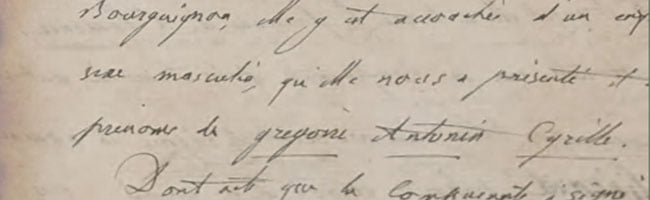 Bourguignon, elle y est accouchée d'un enf
sexe masculin, qu'elle nous a présenté et
prénoms de gregoire Antonin Cyrille.
Dont acte que la Comparante a signé